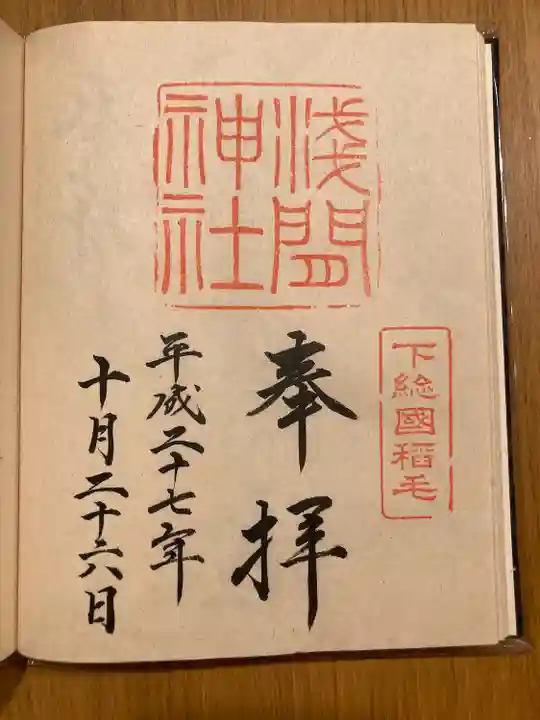 浅間
神社
下総國稲毛
奉拝
平成二十七年
十月二十六日